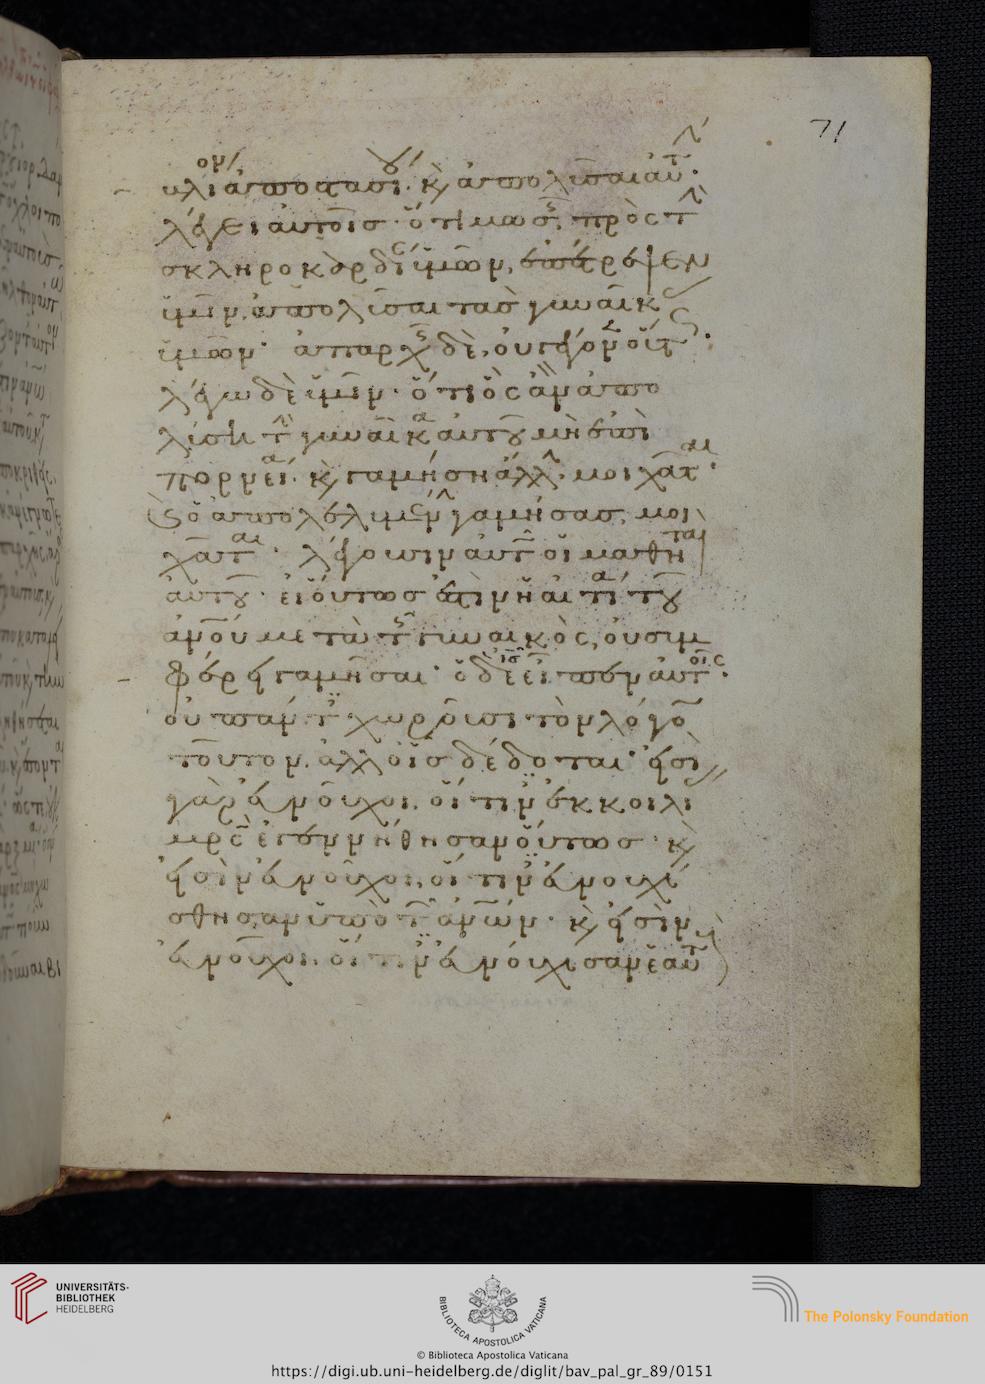 71
βλίον ἀποστασίου· κὶ ἀπολῦσαι αὐτήν·
λέγει αὐτοῖς· ὅτι μωσῆς, πρὸς τὴν
σκληροκαρδίαν ὑμῶν, ἐπέτρεψεν
ὑμῖν ἀπολῦσαι τὰς γυναῖκας
ὑμῶν· ἀπαρχῆς δὲ, οὐ γέγονεν οὕτως·
λέγω δὲ ὑμῖν· ὅτι ὃς ἂν ἀπο
λύσῃ τὴν γυναῖκα αὐτοῦ μὴ ἐπὶ
πορνεία· κὶ γαμήσῃ ἄλλην, μοιχᾶται·
κὶ ὁ ἀπολελυμένην γαμήσας, μοι
χᾶται· λέγουσιν αὐτῶ οἱ μαθηταὶ
αὐτοῦ· εἰ οὕτως ἐστὶν ἡ αἰτία τοῦ
ἀνοῦ μετὰ τῆς γυναικὸς, οὐ συμ
φέρει γαμῆσαι· ὁ δὲ ἰς εἶπεν αὐτοῖς·
οὐ πάντες χωροῦσι τὸν λόγον
τοῦτον, ἀλλ οἷς δέδοται· εἰσὶ
γὰρ εὐνοῦχοι, οἵτινες ἐκ κοιλίας
μρς ἐγεννήθησαν οὕτως· κὶ
εἰσὶν εὐνοῦχοι, οἵτινες εὐνουχί
σθησαν ὑπὸ τῶν ἀνων· κὶ εἰσὶν
εὐνοῦχοι, οἵτινες εὐνούχισαν ἑαυτοὺς
UNIVERSITÄTS-
BIBLIOTHEK
HEIDELBERG
BIBLIOTECA APOSTOLICA VATICANA
The Polonsky Foundation
© Biblioteca Apostolica Vaticana
https://digi.ub.uni-heidelberg.de/diglit/bav_pal_gr_89/0151